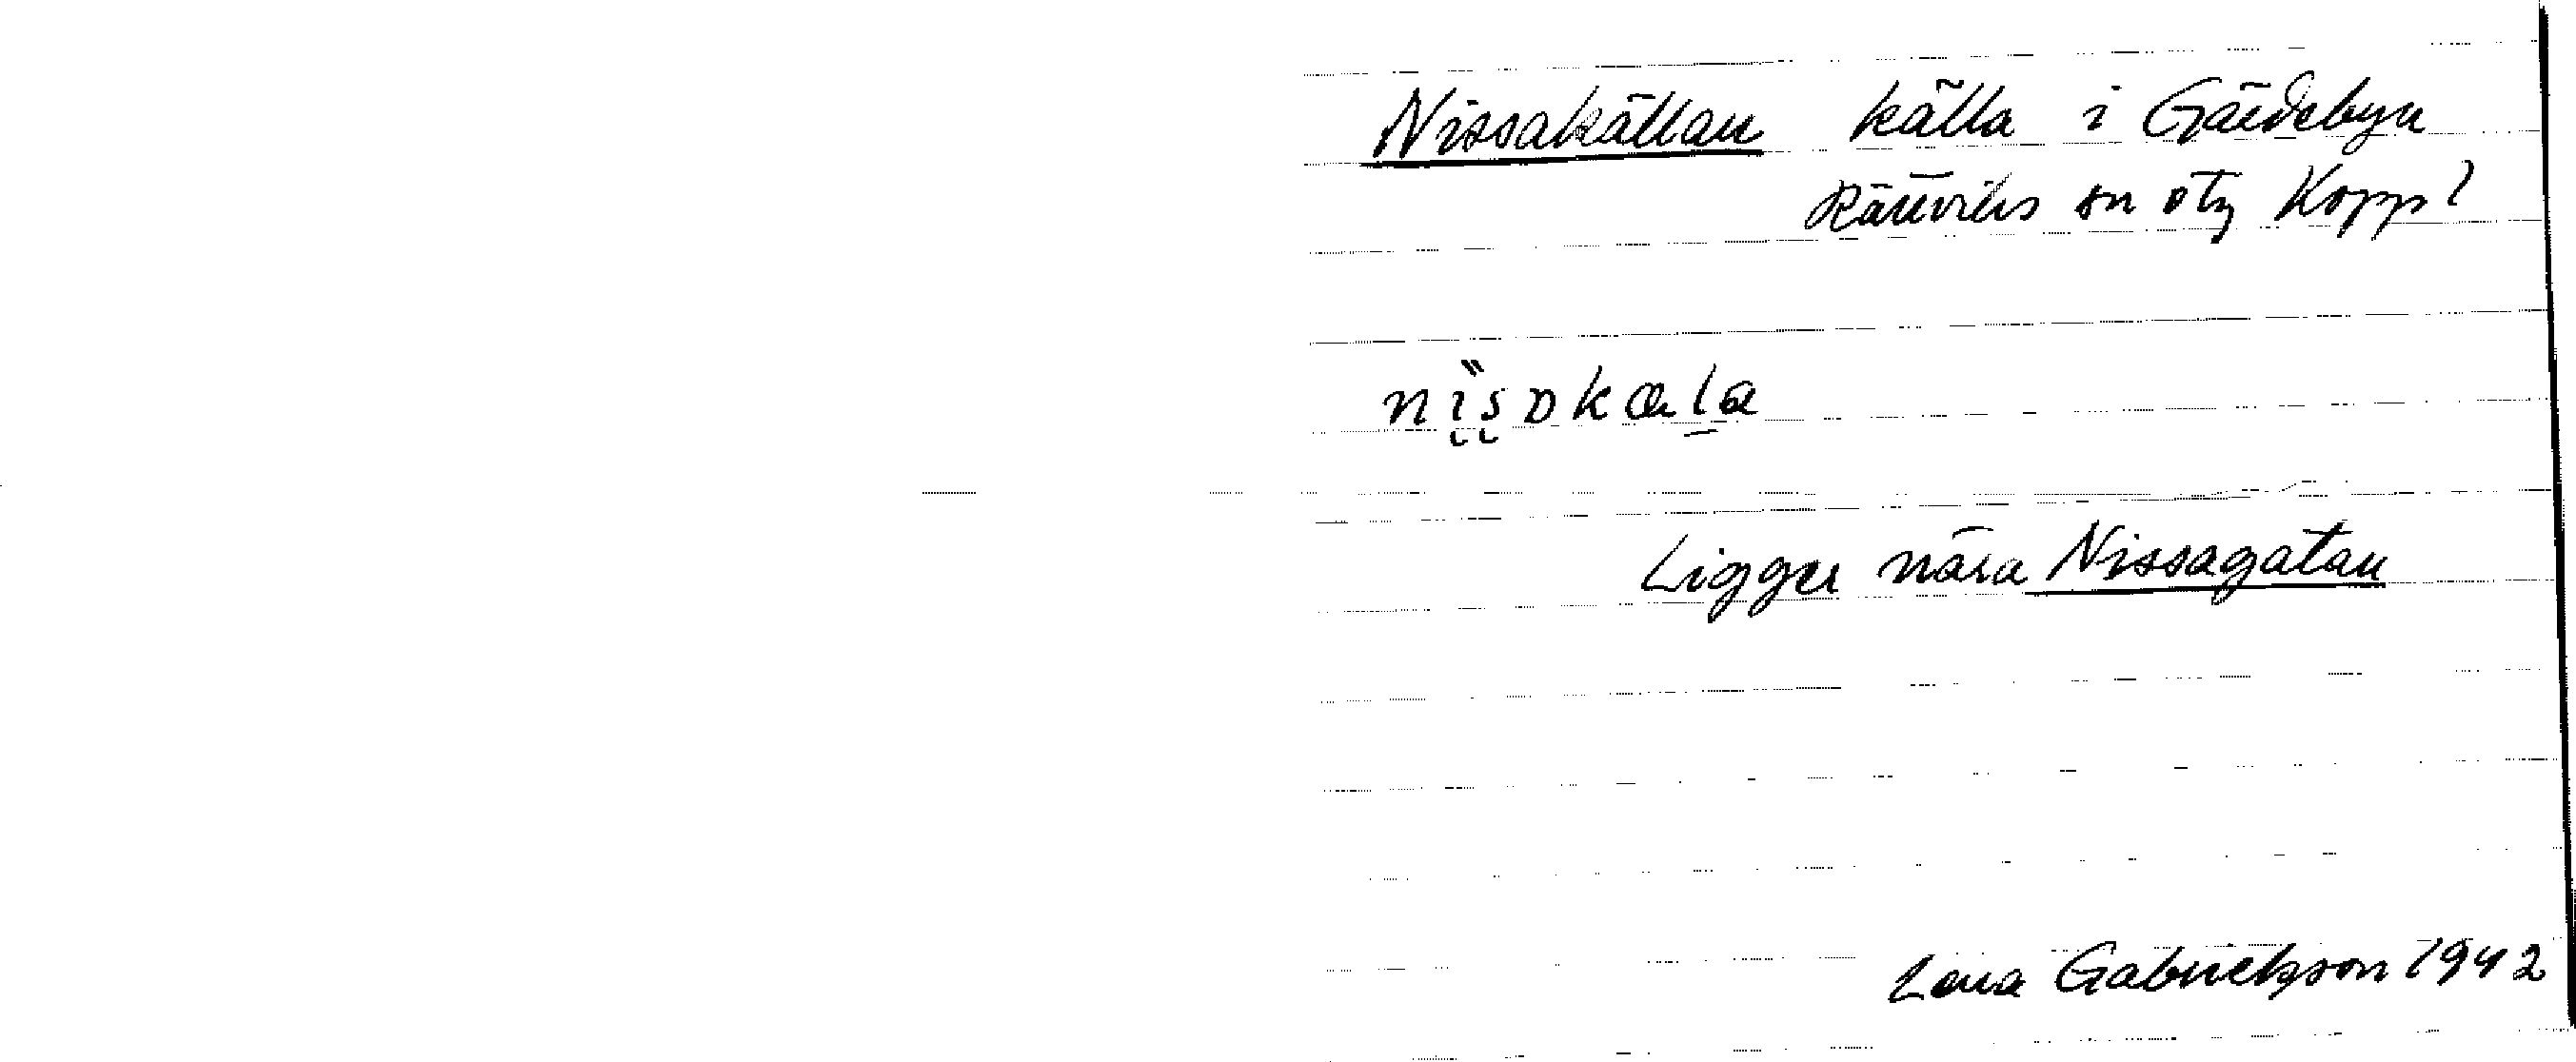 Nissakällan källa i Gärdebyn
Rättviks sn Kopp l
Ligger nära Nissagatan
Lena Gabrielsson 1942